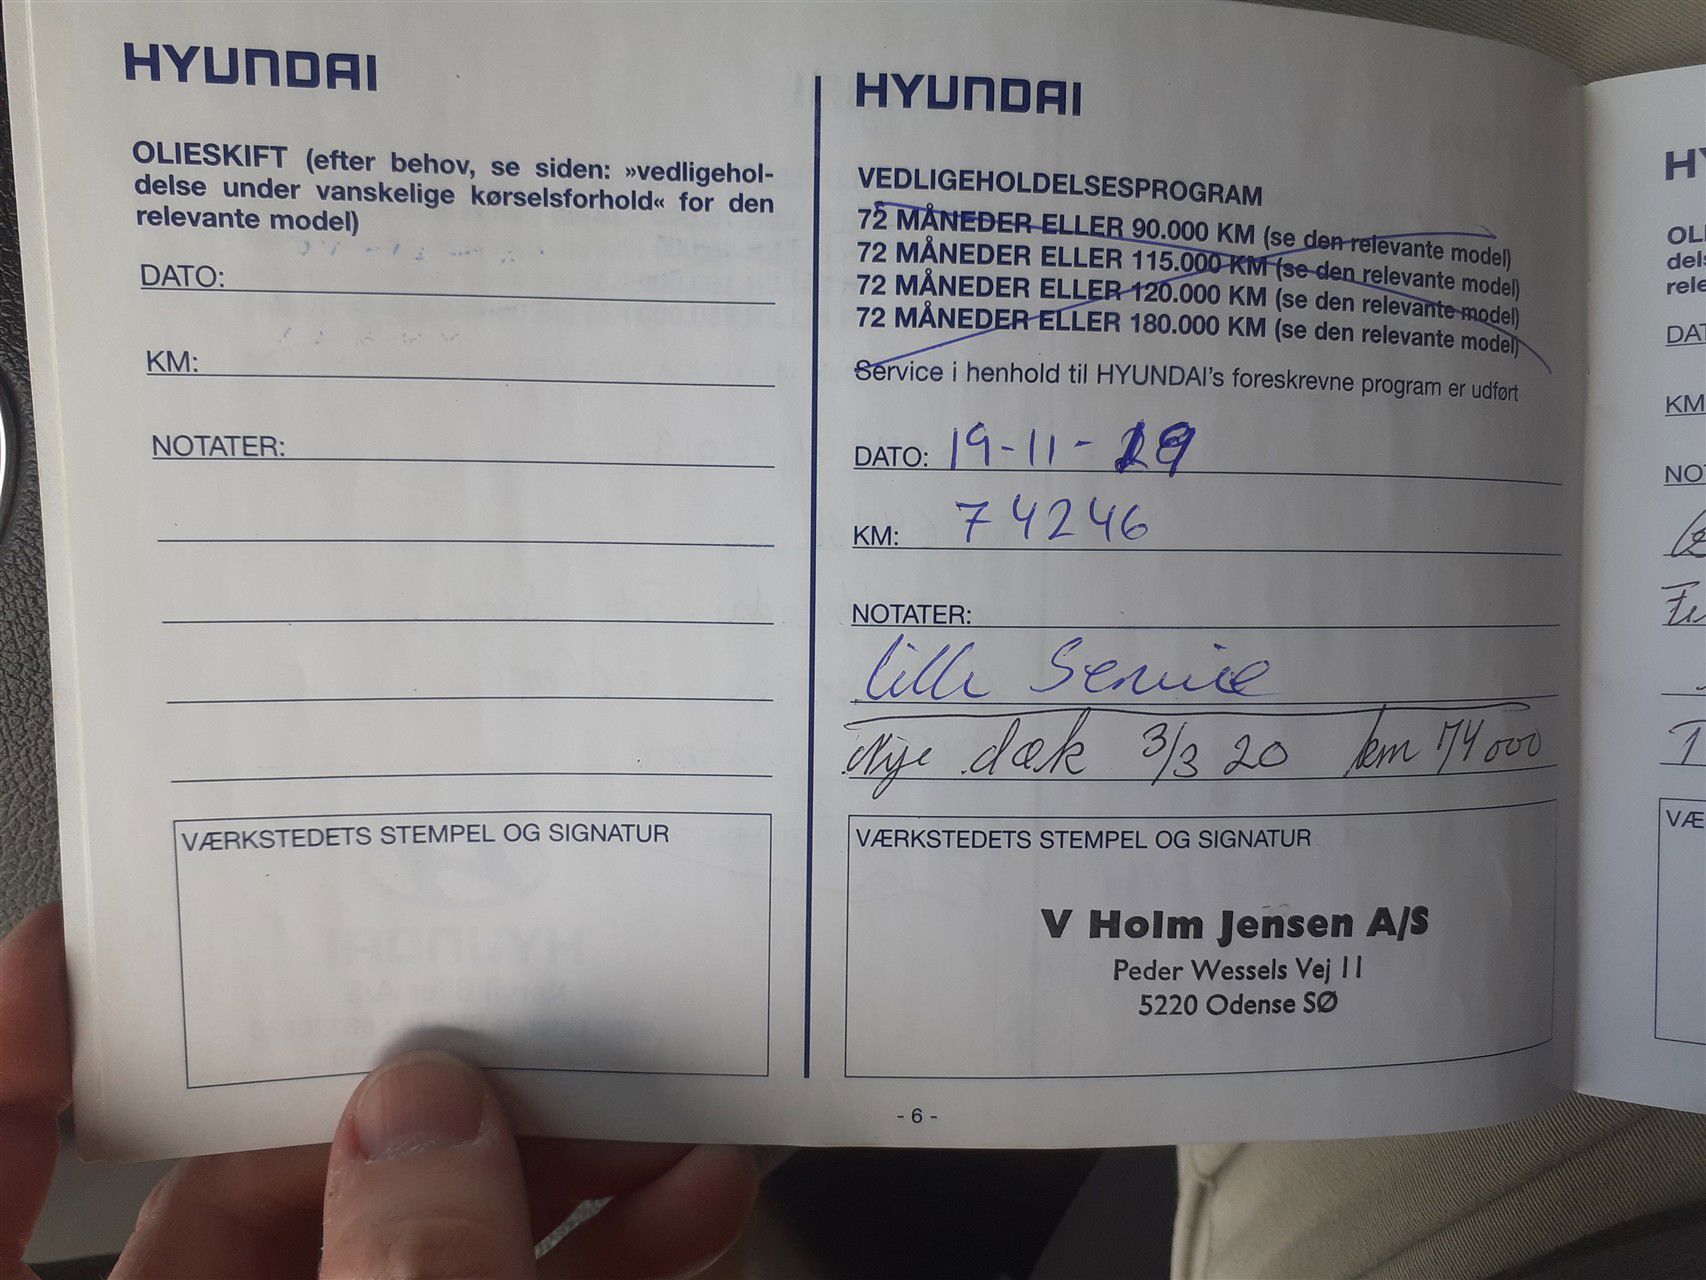 HYUNDAI
OLIESKIFT (efter behov, se siden: »vedligehol-
delse under vanskelige kørselsforhold« for den
relevante model)
DATO:
KM:
NOTATER:
VÆRKSTEDETS STEMPEL OG SIGNATUR
HYUNDAI
VEDLIGEHOLDELSESPROGRAM
72 MÅNEDER ELLER 90.000 KM (se den relevante model)
72 MÅNEDER ELLER 115.000 KM (se den relevante model)
72 MÅNEDER ELLER 120.000 KM (se den relevante model)
72 MÅNEDER ELLER 180.000 KM (se den relevante model)
Service i henhold til HYUNDAI's foreskrevne program er udført
DATO: 19-11-19
KM: 74246
NOTATER:
lille Service
Nye dæk 3/3 20 km 74000
VÆRKSTEDETS STEMPEL OG SIGNATUR
V Holm Jensen A/S
Peder Wessels Vej 11
5220 Odense SØ
- 6 -
HY
OLI
dels
rele
DAT
KM
NO
VÆ